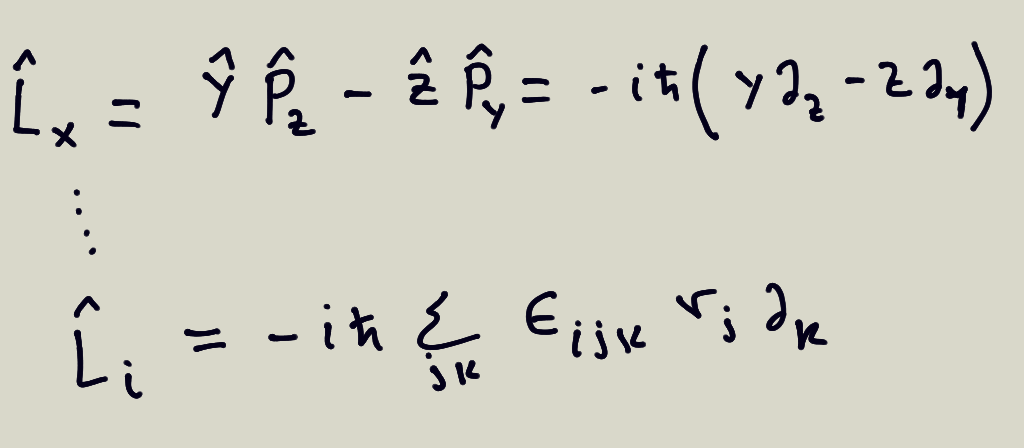 L̂ₓ = ŷ P̂_z - ẑ P̂_y = - iħ( y∂_z - z∂_y)
⋮
L̂_i = - iħ Σ_jk ϵ_ijk r_j ∂_k